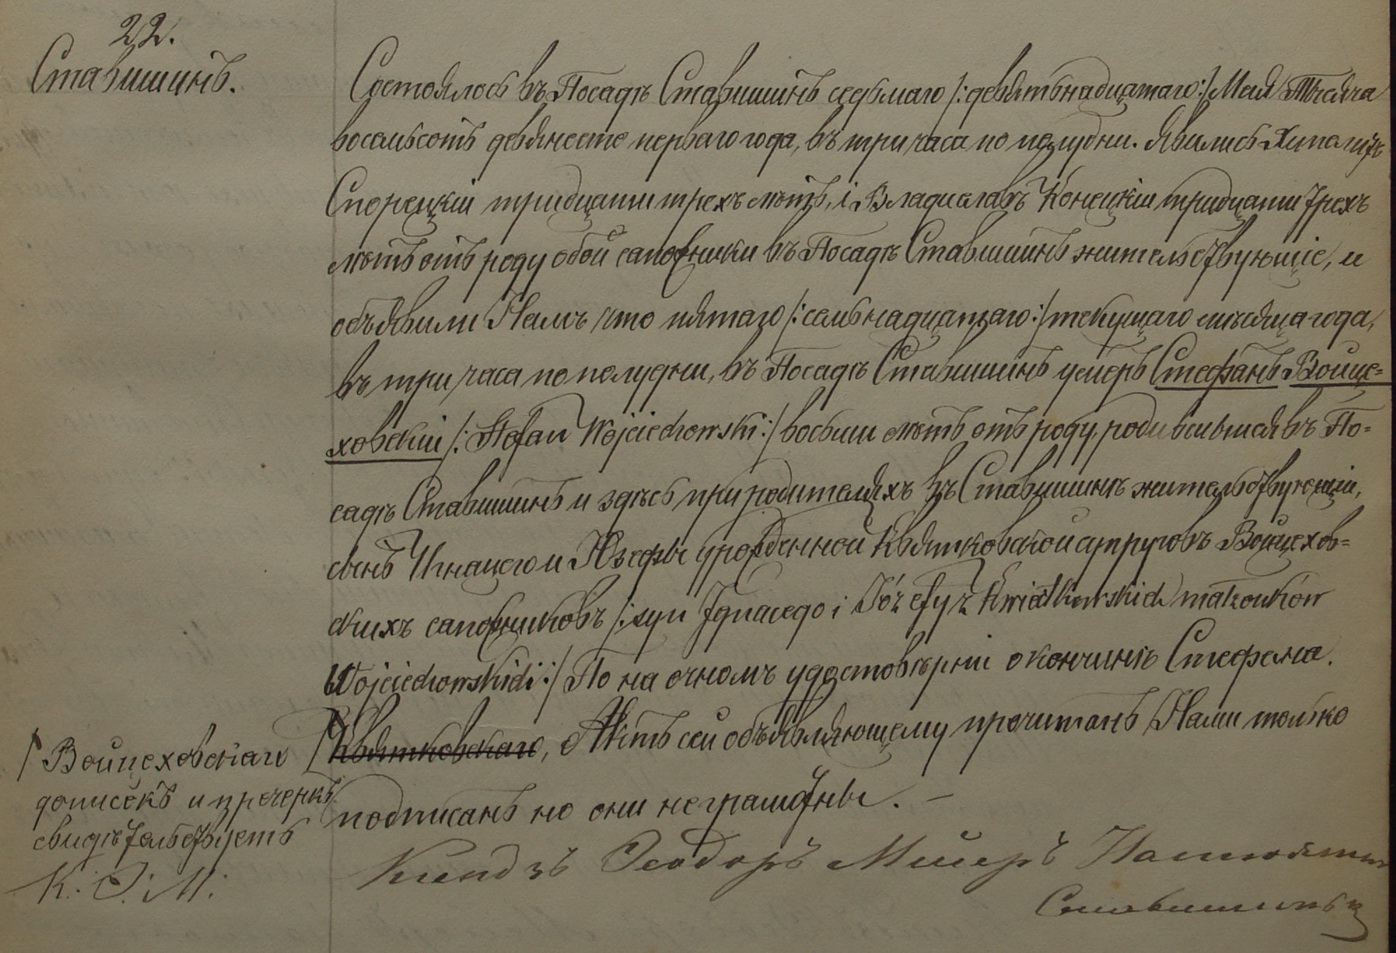 22.
Ставишинъ.
Состоялось въ Посадѣ Ставишинѣ седьмаго /:девятьнадцатаго:/ Мая Тысяча
восемьсотъ девяносто перваго года, въ три часа по полудни. Явились
Спорецкій тридцати трехъ лѣтъ, і Владиславъ Конецкій тридцати трехъ
лѣтъ отъ роду обои сапожники въ Посадѣ Ставишинѣ жительствующіе, и
объявили Намъ что пятаго /:семьнадцатаго:/ текущаго мѣсяца года,
въ три часа по полудни, въ Посадѣ Ставишинѣ умеръ Стефанъ Войце=
ховскій /: Stefan Wojciechowski:/ восьми лѣтъ отъ роду, родившійся въ По=
садѣ Ставишинѣ и здѣсь при родителяхъ въ Ставишинѣ жительствующій,
сынъ Игнацего и Юзефы урожденной Квятковской супруговъ Войцехов=
скихъ сапожниковъ /: syn Ignacego i Józefy z Kwiatkowskich małżonków
Wojciechowskich:/ По на очномъ удостовѣрніи о кончинѣ Стефана.
Квятковскаго, Актъ сей объявляющему прочитанъ Нами только
подписанъ но они неграмотны. –
/ Войцеховскаго
дописокъ и пречеркъ
свидѣтельствуетъ
К. Ѳ. М.
Ксендзъ Ѳеодоръ Мейеръ Настоятель